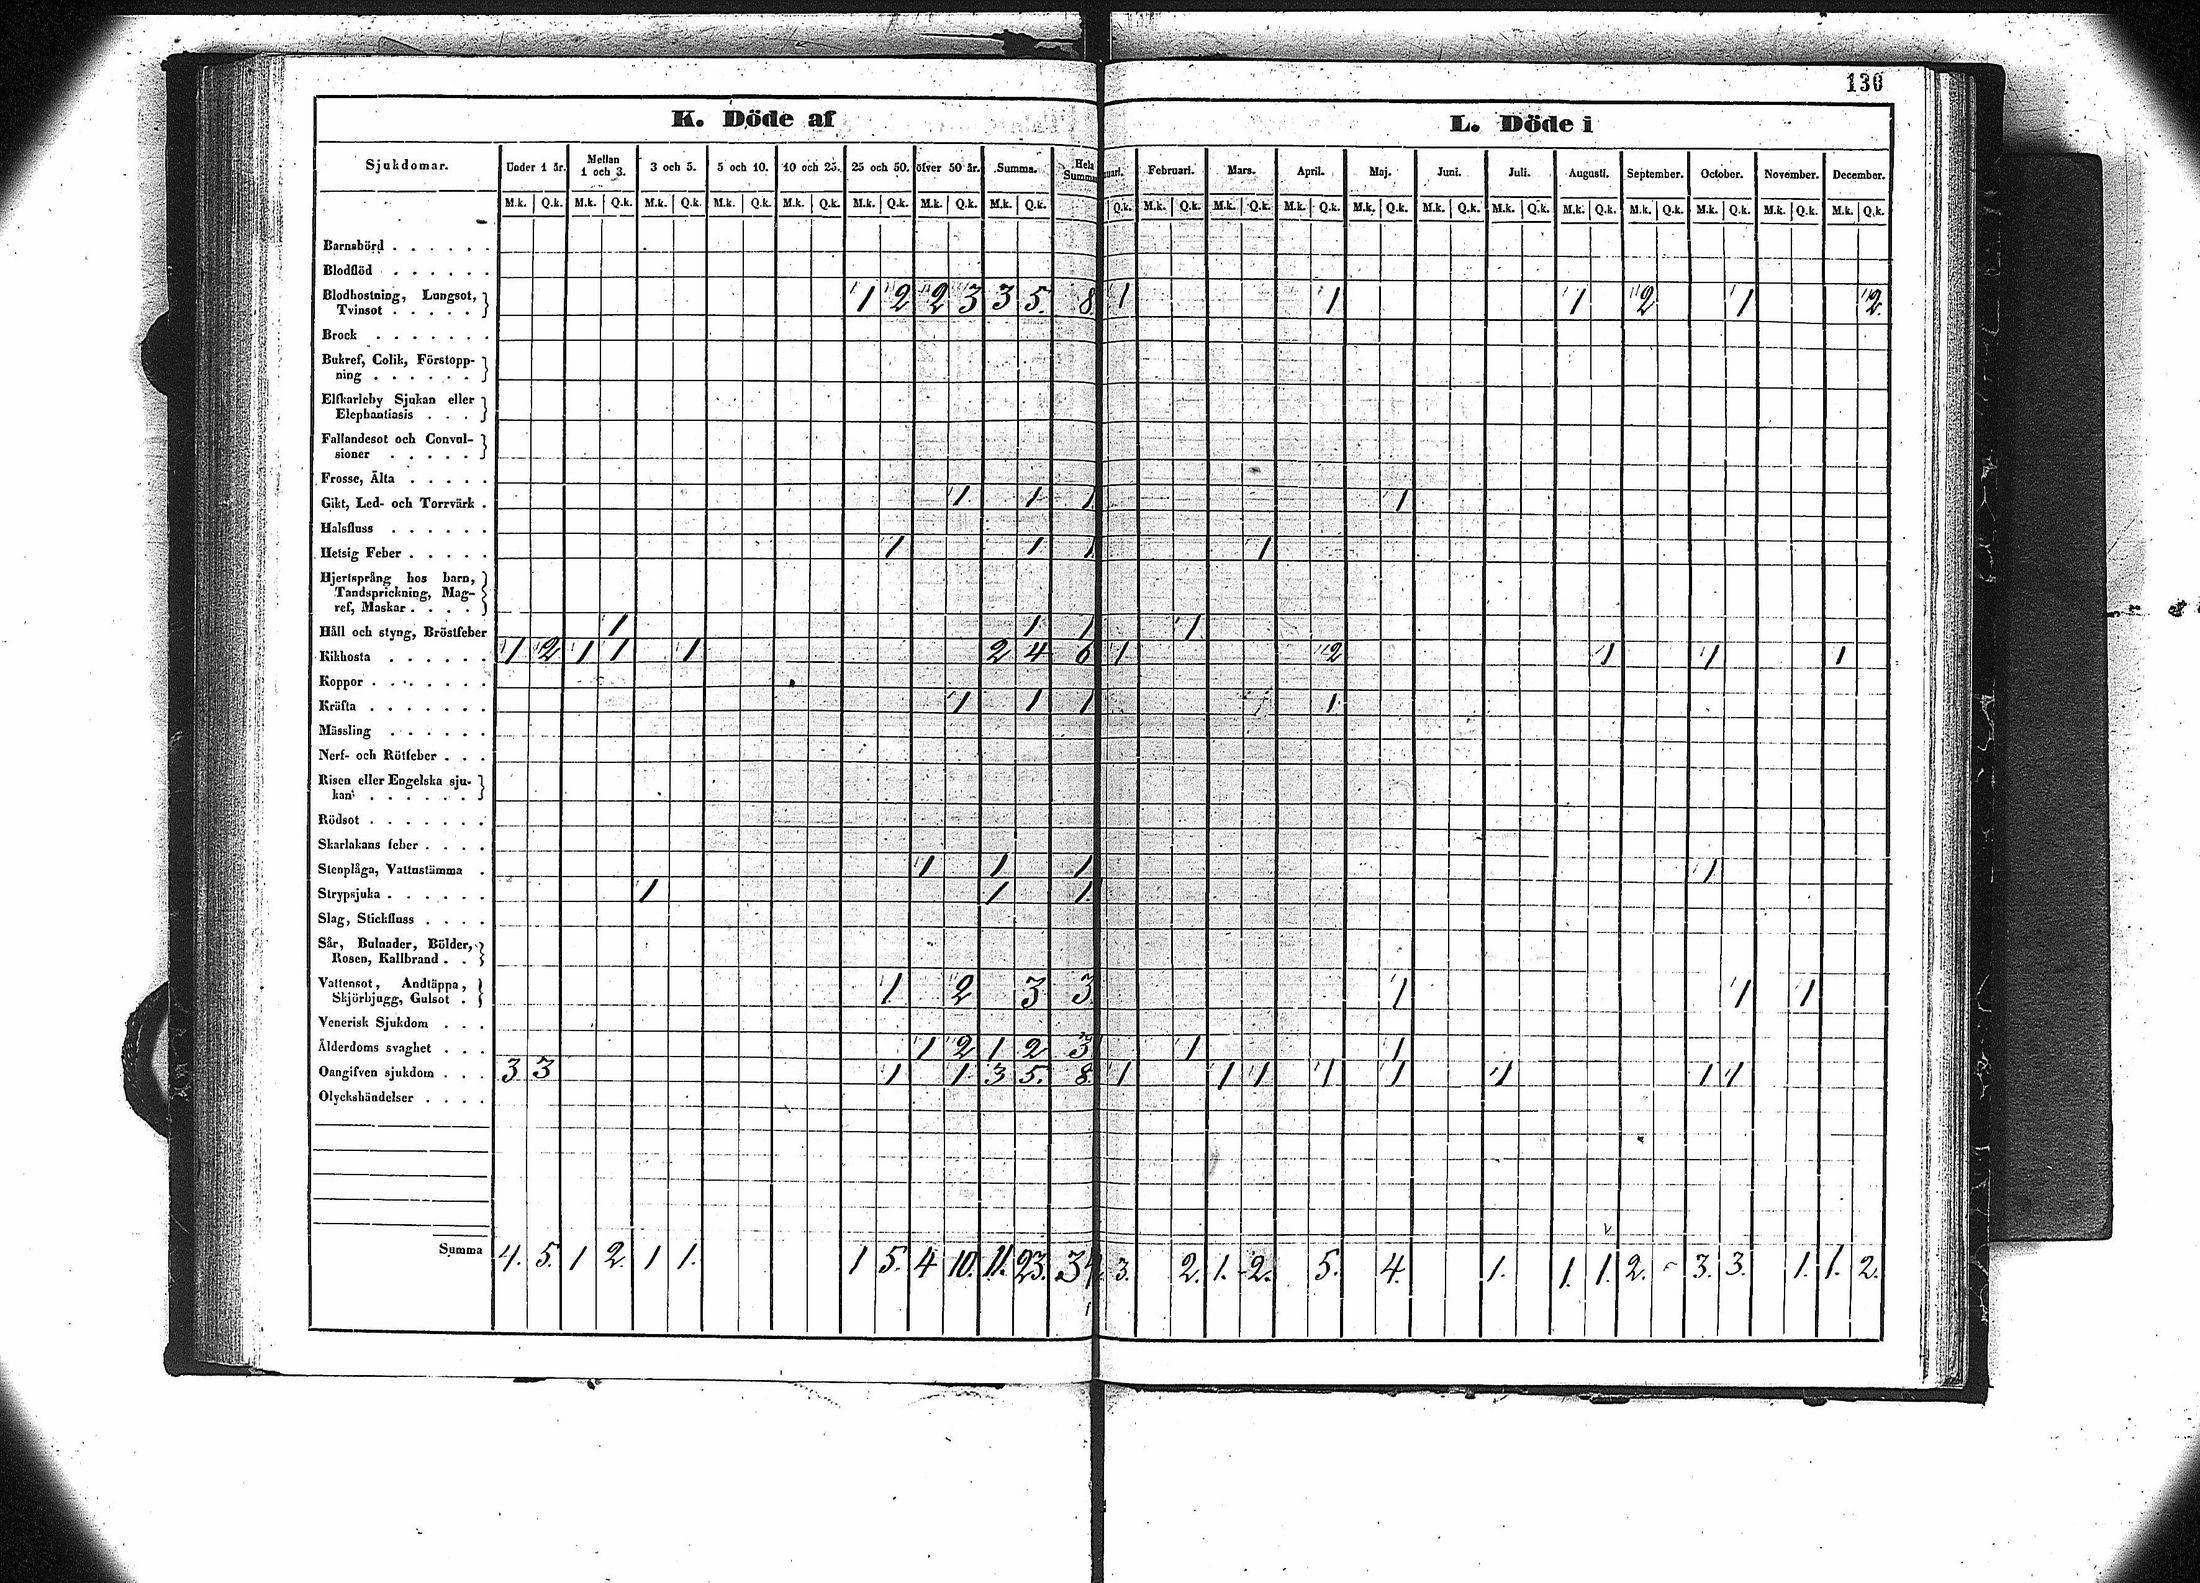 130
K. Döde af
L. Döde i
Sjukdomar. Under 1 år. Mellan 1 och 3. 3 och 5. 5 och 10. 10 och 25. 25 och 50. öfver 50 år. Summa. Hela Summa uari. Februari. Mars. April. Maj. Juni. Juli. Augusti. September. October. November. December.
M.k. Q.k. M.k. Q.k. M.k. Q.k. M.k. Q.k. M.k. Q.k. M.k. Q.k. M.k. Q.k. M.k. Q.k. Q.k. M.k. Q.k. M.k. Q.k. M.k. Q.k. M.k. Q.k. M.k. Q.k. M.k. Q.k. M.k. Q.k. M.k. Q.k. M.k. Q.k. M.k. Q.k. M.k. Q.k.
Barnsbörd . . . . . .
Blodflöd . . . . . .
Blodhostning, Lungsot,
Tvinsot . . . . . 1 2 2 3 3 5. 8. 1 1 1 2 1 2.
Brock . . . . . . .
Bukref, Colik, Förstopp-
ning . . . . . .
Elfkarleby Sjukan eller
Elephantiasis . . .
Fallandesot och Convul-
sioner . . . . .
Frosse, Älta . . . . .
Gikt, Led- och Torrvärk . 1 1 1 1
Halsfluss . . . . . .
Hetsig Feber . . . . . 1 1 1 1
Hjertsprång hos barn,
Tandsprickning, Mag-
ref, Maskar . . . .
Håll och styng, Bröstfeber 1 1 1 1
Kikhosta . . . . . . 1 2 1 1 1 2 4 6 1 2 1 1 1
Koppor . . . . . . .
Kräfta . . . . . . . 1 1 1 1
Mässling . . . . . .
Nerf- och Rötfeber . . .
Risen eller Engelska sju-
kan . . . . . .
Rödsot . . . . . . .
Skarlakans feber . . . .
Stenplåga, Vattustämma . 1 1 1 1
Strypsjuka . . . . . . 1 1 1.
Slag, Stickfluss . . . .
Sår, Bulnader, Bölder,
Rosen, Kallbrand . .
Vattensot, Andtäppa,
Skjörbjugg, Gulsot . 1 2 3 3 1 1 1
Venerisk Sjukdom . . .
Ålderdoms svaghet . . . 1 2 1 2 3 1 1
Oangifven sjukdom . . . 3 3 1 1 3 5. 8. 1 1 1 1 1 1 1 1
Olyckshändelser . . . .
Summa 4. 5. 1 2. 1 1. 1 5. 4 10. 11. 23. 34. 3. 2. 1. 2. 5. 4. 1. 1. 1. 2. 3. 3. 1. 1. 2.